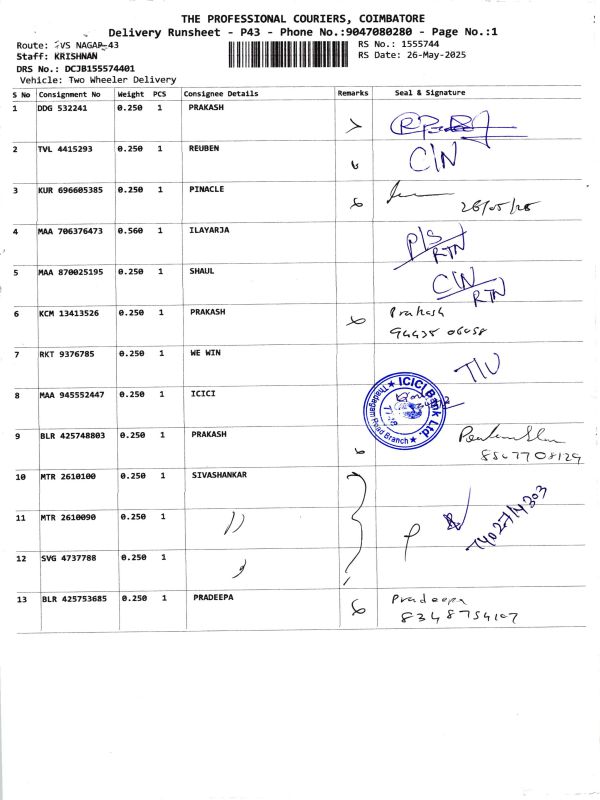 THE PROFESSIONAL COURIERS, COIMBATORE
Delivery Runsheet - P43 - Phone No.:9047080280 - Page No.:1
Route: VS NAGAR-43
RS No.: 1555744
Staff: KRISHNAN
RS Date: 26-May-2025
DRS No.: DCJB155574401
Vehicle: Two Wheeler Delivery
S No Consignment No Weight PCS Consignee Details Remarks Seal & Signature
1 DDG 532241 0.250 1 PRAKASH
2 TVL 4415293 0.250 1 REUBEN C/N
3 KUR 696605385 0.250 1 PINACLE 26/05/25
4 MAA 706376473 0.560 1 ILAYARJA P/S RTN
5 MAA 870025195 0.250 1 SHAUL C/N RTN
6 KCM 13413526 0.250 1 PRAKASH Prakash
7 RKT 9376785 0.250 1 WE WIN
8 MAA 945552447 0.250 1 ICICI ICICI Bank Ltd. Thadagam Road Branch
9 BLR 425748803 0.250 1 PRAKASH
10 MTR 2610100 0.250 1 SIVASHANKAR
11 MTR 2610090 0.250 1
12 SVG 4737788 0.250 1
13 BLR 425753685 0.250 1 PRADEEPA Pradeepa
8348754107